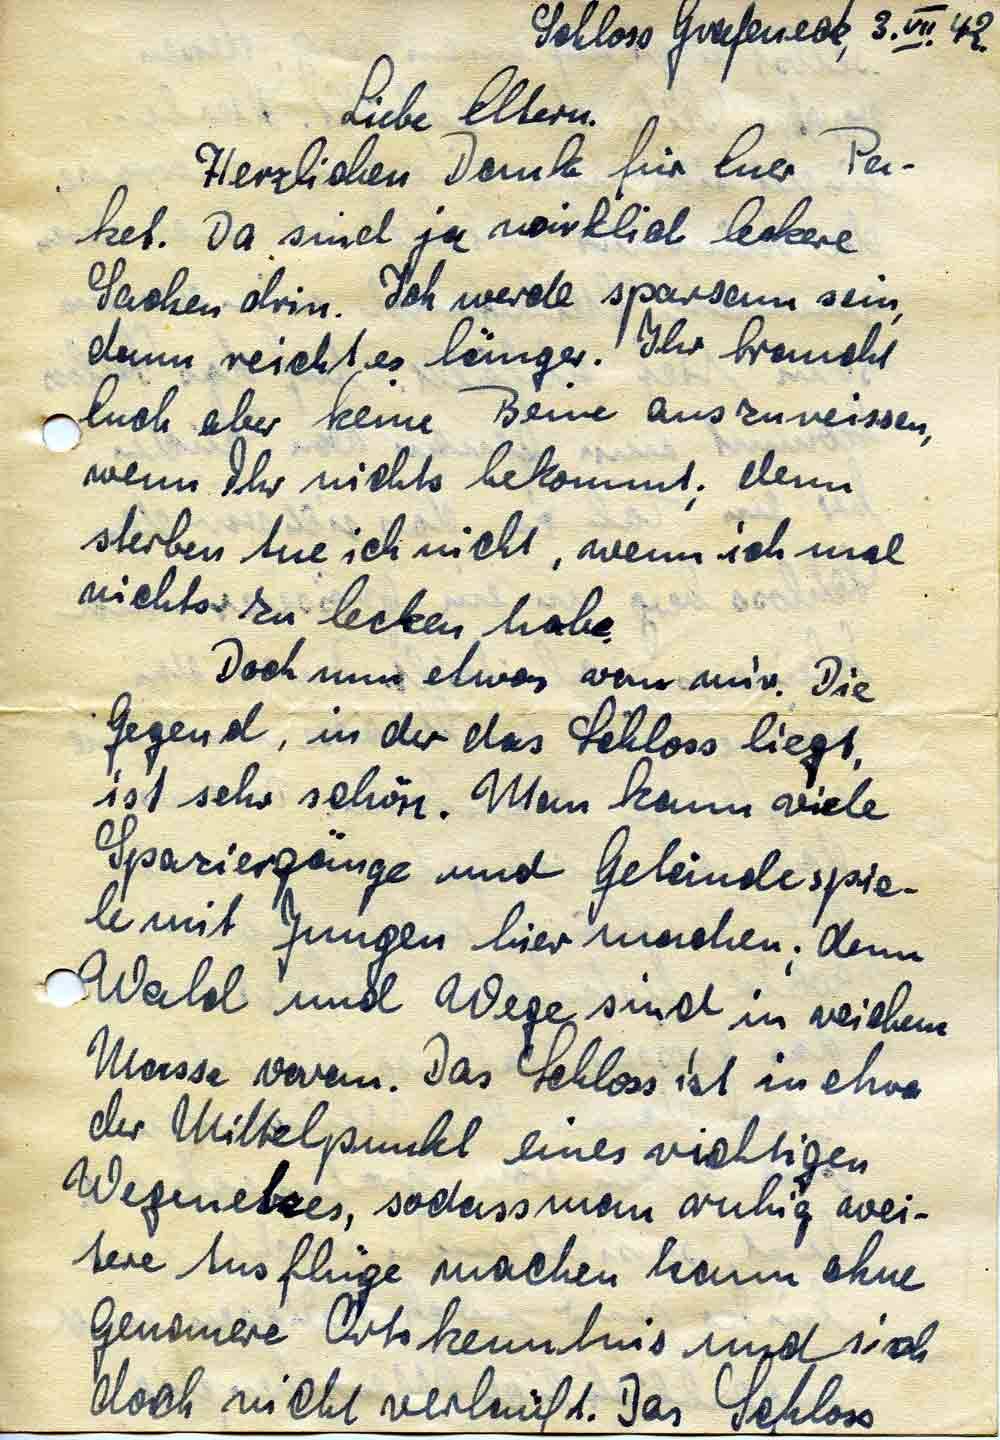 Schloss Grafeneck, 3. VII. 42.
Liebe Eltern.
Herzlichen Dank für Euer Pa-
ket. Da sind ja wirklich leckere
Sachen drin. Ich werde sparsam sein,
dann reicht es länger. Ihr braucht
Euch aber keine Beine auszureissen,
wenn Ihr nichts bekommt; denn
sterben tue ich nicht, wenn ich mal
nichts zu lecken habe.
Doch nun etwas von mir. Die
Gegend, in der das Schloss liegt,
ist sehr schön. Man kann viele
Spaziergänge und Geländespie-
le mit Jungen hier machen; denn
Wald und Wege sind in reichem
Masse voran. Das Schloss ist in etwa
der Mittelpunkt eines richtigen
Wegenetzes, sodass man ruhig wei-
tere Ausflüge machen kann ohne
genauere Ortskenntnis und sich
doch nicht verläuft. Das Schloss